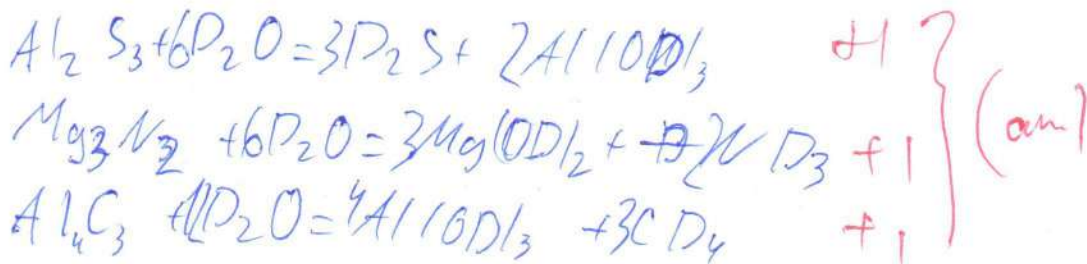 Al₂S₃+6D₂O=3D₂S+ 2Al(OD)₃ +1
Mg₃N₂ +6D₂O=3Mg(OD)₂+ 2ND₃ +1
Al₄C₃ +12D₂O=4Al(OD)₃ +3CD₄ +1